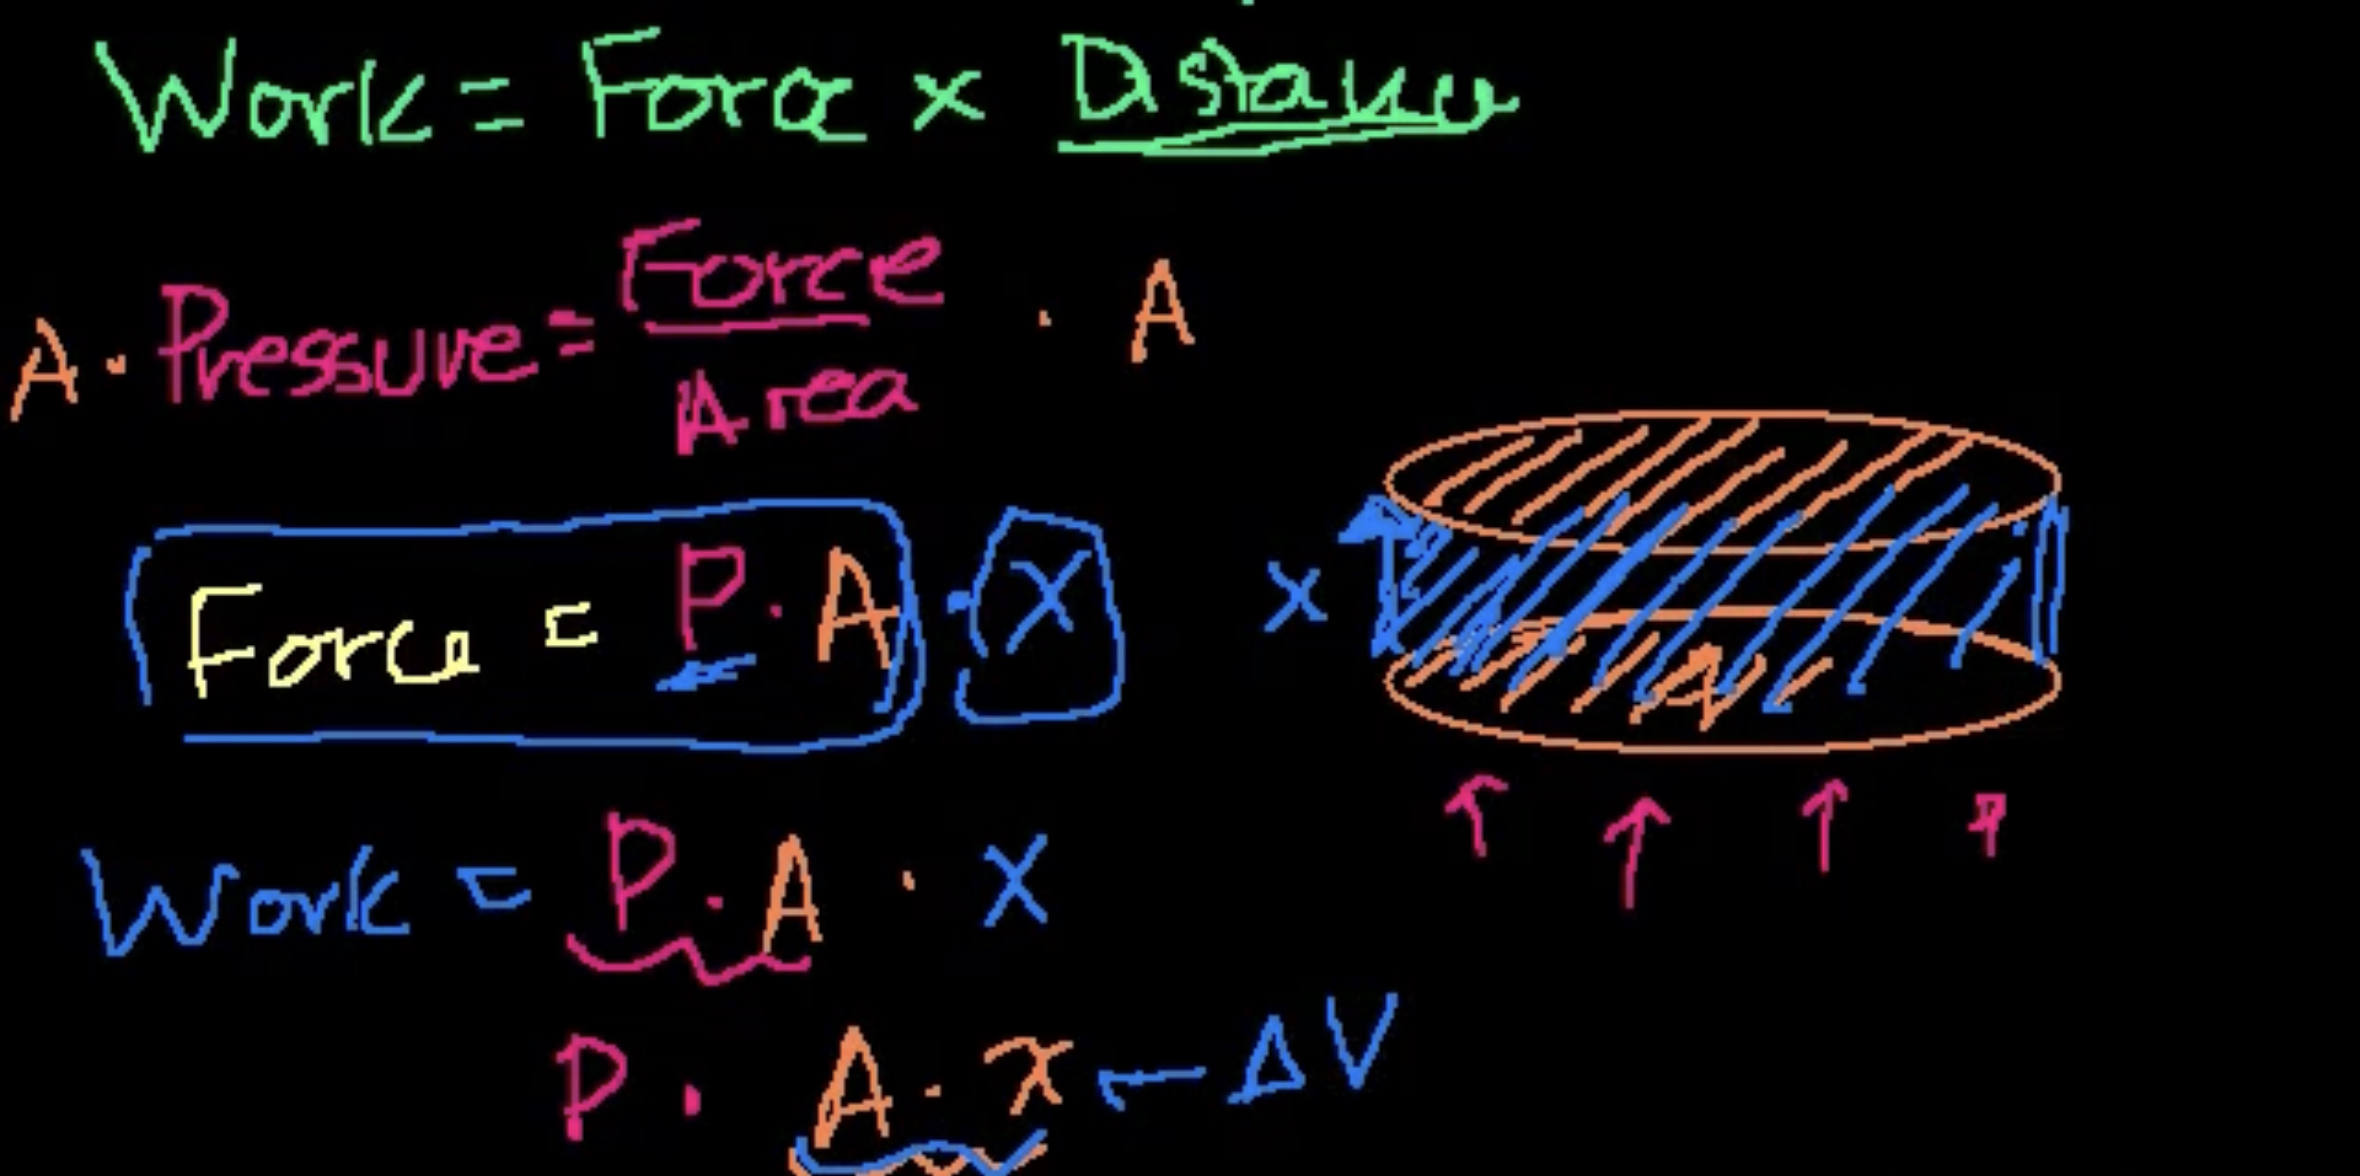 Work = Force x Distance
A · Pressure = Force / Area · A
Force = P · A · x
x
A
Work = P · A · x
P · A · x ← ΔV